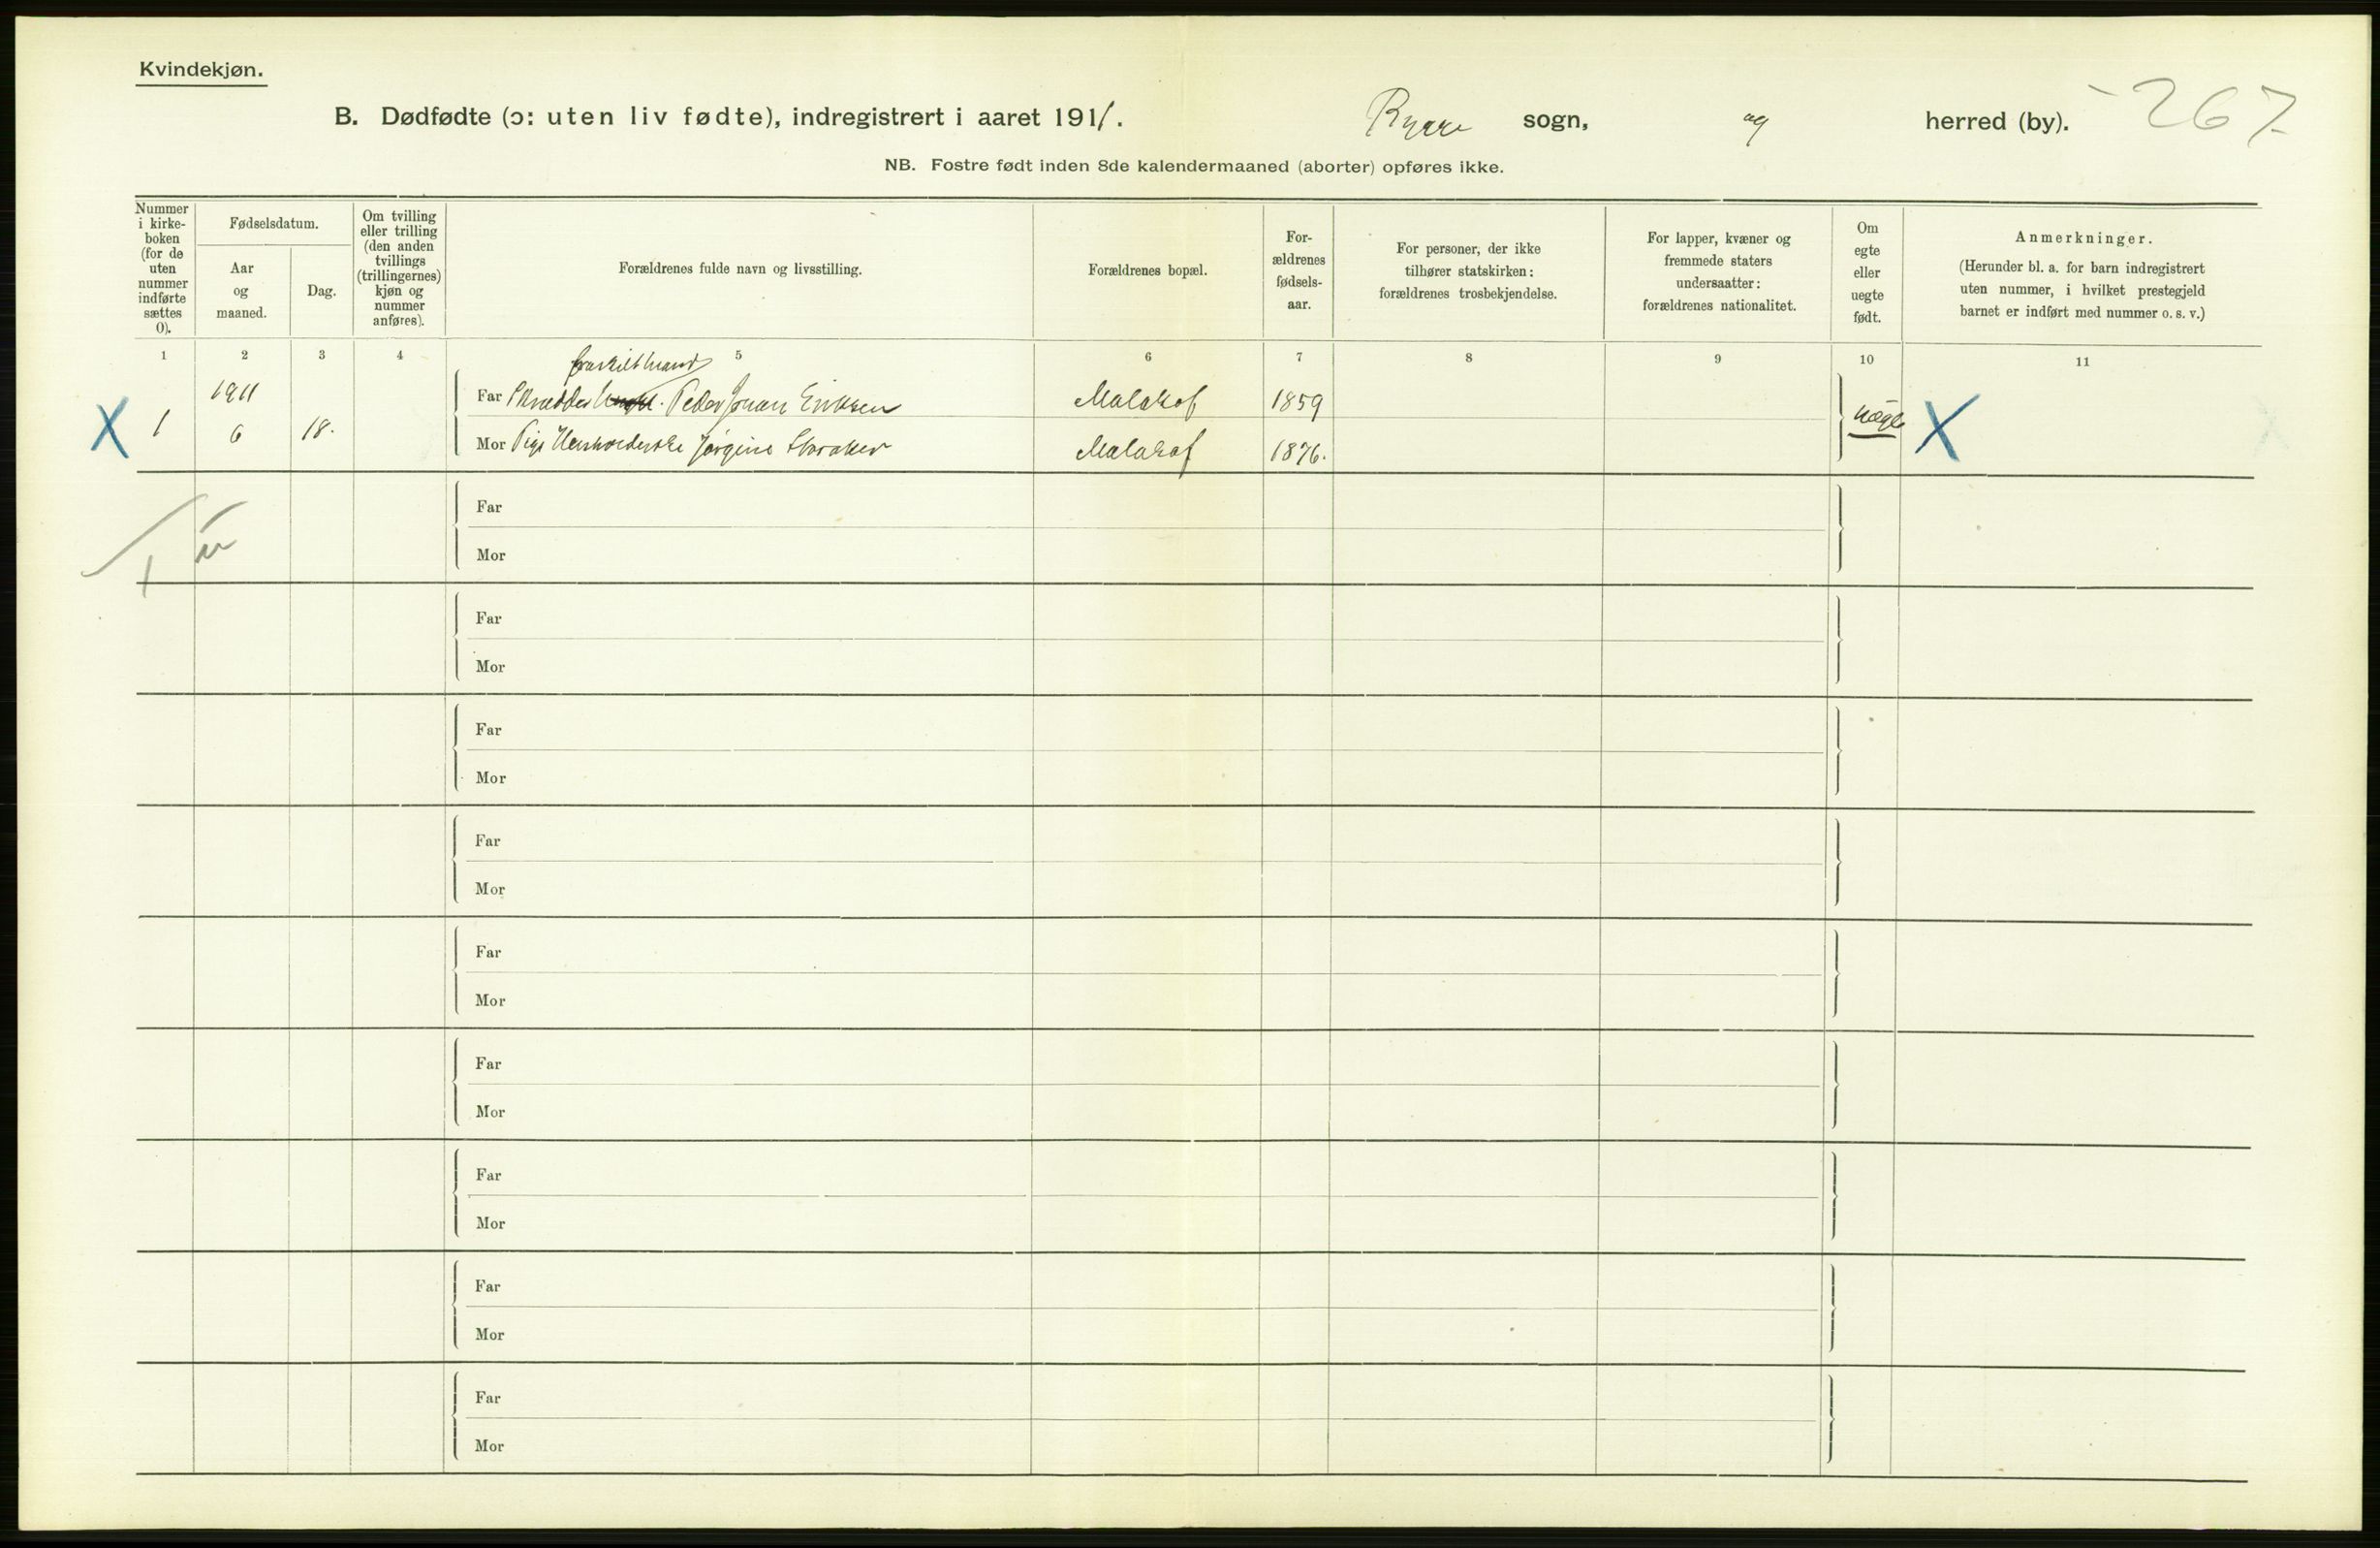 Kvindekjøn.
B. Dødfødte (ɔ: uten liv fødte), indregistrert i aaret 1911. Rygge sogn, og herred (by). 267
NB. Fostre født inden 8de kalendermaaned (aborter) opføres ikke.
Nummer i kirke-boken (for de uten nummer indførte sættes 0).
Fødselsdatum.
Aar og maaned.
Dag.
Om tvilling eller trilling (den anden tvillings (trillingernes) kjøn og nummer anføres).
Forældrenes fulde navn og livsstilling.
Forældrenes bopæl.
For-ældrenes fødsels-aar.
For personer, der ikke tilhører statskirken: forældrenes trosbekjendelse.
For lapper, kvæner og fremmede staters undersaatter: forældrenes nationalitet.
Om egte eller uegte født.
Anmerkninger.
(Herunder bl. a. for barn indregistrert uten nummer, i hvilket prestegjeld barnet er indført med nummer o. s. v.)
1 2 3 4 5 6 7 8 9 10 11
fraskilt mand
X 1 1911 6 18. Far Skrædder Peder Johan Eriksen Malakof 1859 uegte X
Mor Pige Husholderske Jørgine Storaker Malakof 1876.
Far
Mor
Far
Mor
Far
Mor
Far
Mor
Far
Mor
Far
Mor
Far
Mor
Far
Mor
Far
Mor